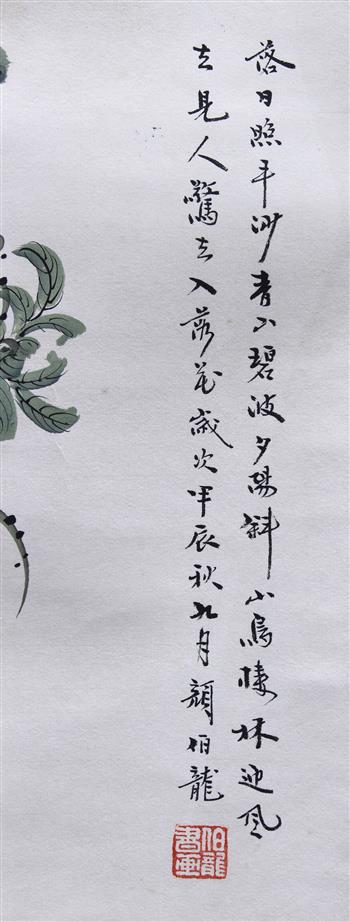 落日照平沙青山碧波夕陽斜小鳥棲林迎風
立見人驚去入芦花歲次甲辰秋九月顏伯龍
伯龍書画